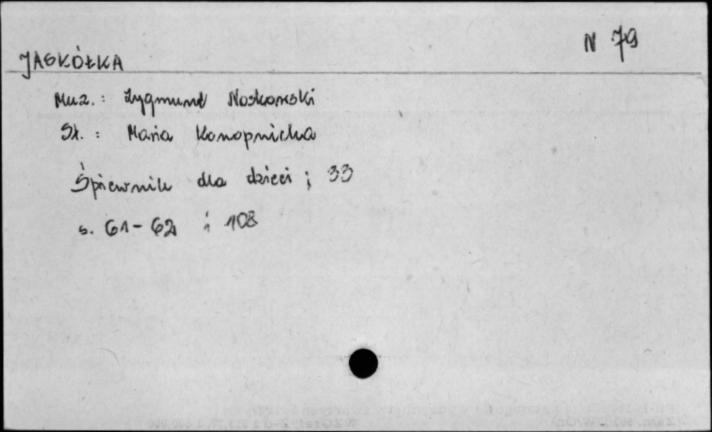 N 79
JASKÓŁKA
Muz.: Zygmunt Noskowski
Sł.: Maria Konopnicka
Śpiewnik dla dzieci ; 33
s. 61-62 i 108